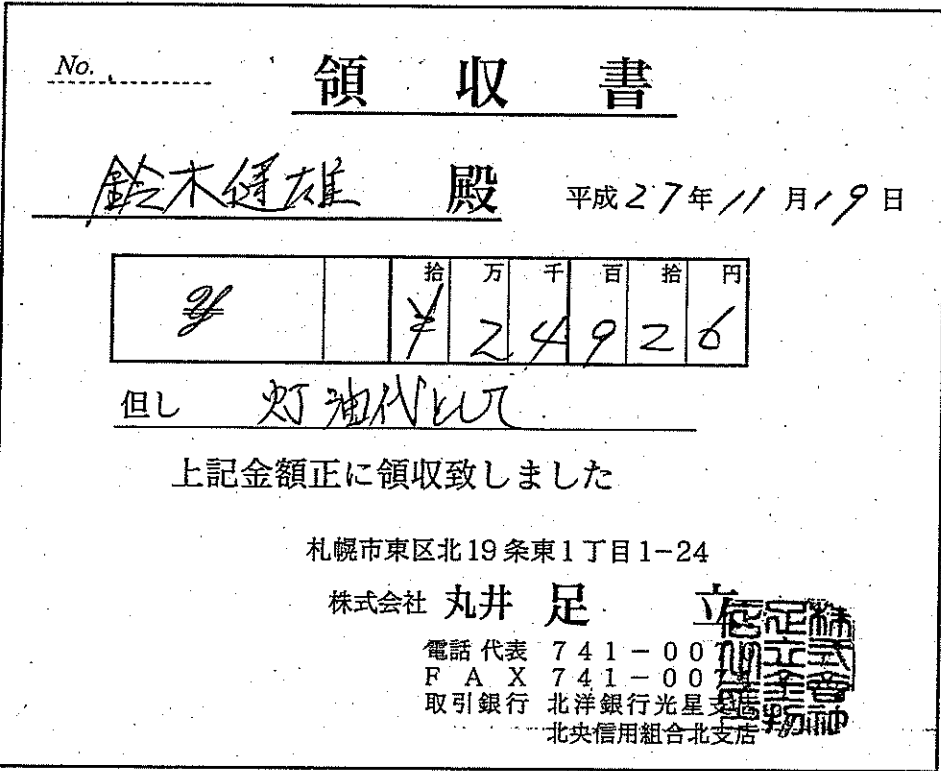 No.
領収書
鈴木健雄 殿 平成27年11月19日
拾 万 千 百 拾 円
¥ 2 4 9 2 6
但し 灯油代として
上記金額正に領収致しました
札幌市東区北19条東1丁目1-24
株式会社 丸井 足立
電話 代表 741-007
FAX 741-007
取引銀行 北洋銀行光星支店
北央信用組合北支店
株式会社
足立金物